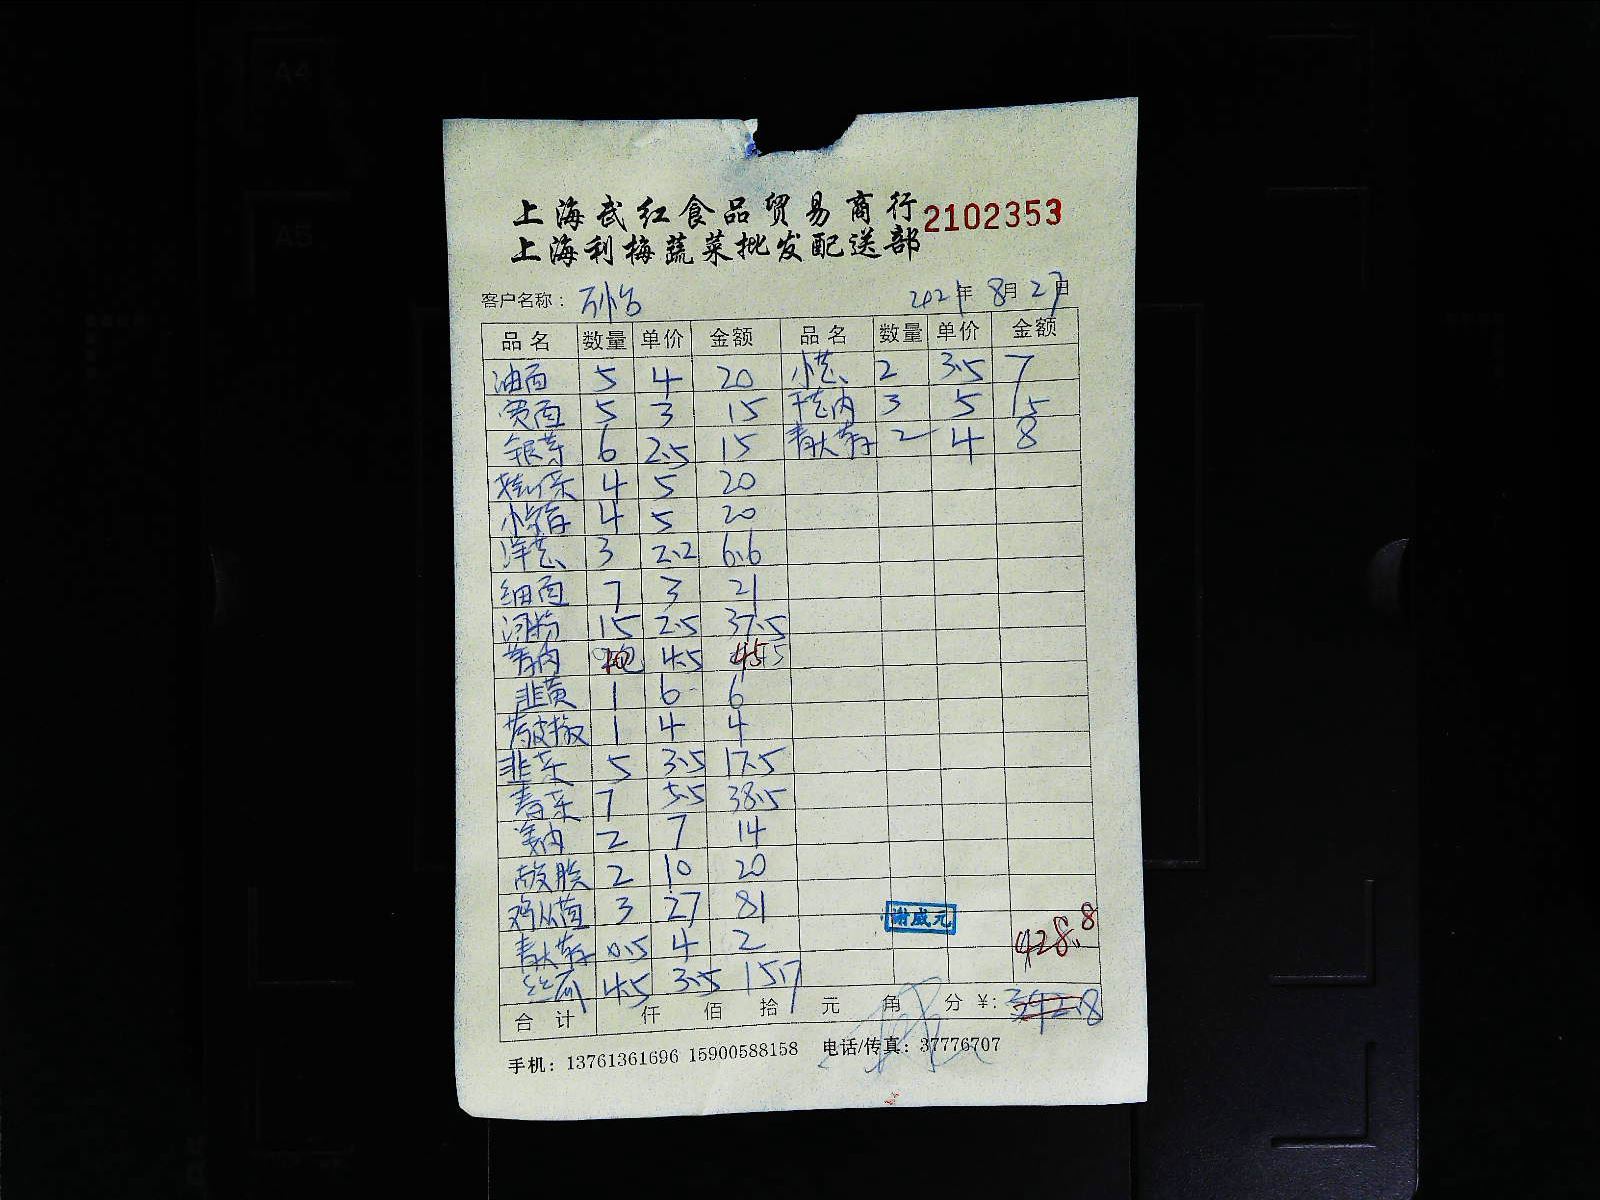 上海武红食品贸易商行 2102353
上海利梅蔬菜批发配送部
客户名称： 2021年 8月 27日
品名 数量 单价 金额 品名 数量 单价 金额
油面 5 4 20 小葱 2 3.5 7
宽面 5 3 15 干葱肉 3 5 15
银芽 6 2.5 15 青大芽 2 4 8
4 5 20
4 5 20
洋葱 3 2.2 6.6
细面 7 3 21
河粉 15 2.5 37.5
4.5
韭黄 1 6 6
1 4 4
韭菜 5 3.5 17.5
青菜 7 5.5 38.5
姜肉 2 7 14
2 10 20
鸡从菌 3 27 81
谢威元
青大芽 0.5 4 2 428.8
丝瓜 4.5 3.5 15.7
合计 仟 佰 拾 元 角 分 ¥:
手机：13761361696 15900588158 电话/传真：37776707
A4
A5